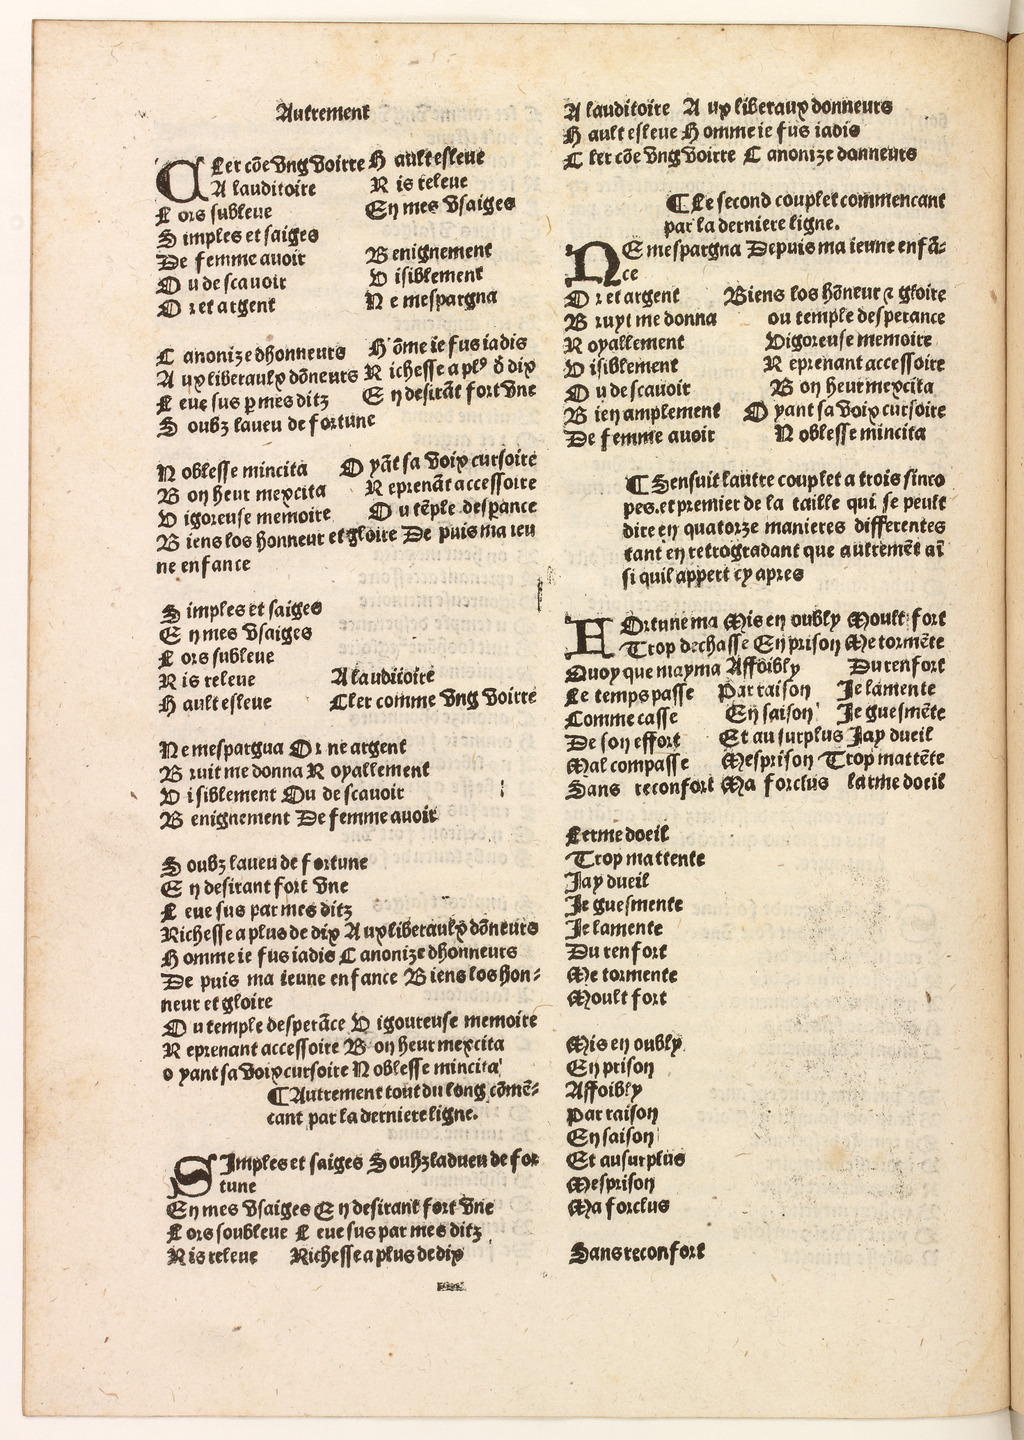 Autrement
CLer cõe vng voirre Hault esleue
Alauditoire Ris releue
Lors subleue En mes vsaiges
Simples et saiges
De femme auoir Benignement
Ou de scauoir Visiblement
Or et argent Ne mespargna
Canonize dhonneurs Hõme ie fus iadis
Aux liberaulx dõneurs Richesse a plꝰ d̾ dix
Leue sus ꝑ mes ditz En desirãt fort vne
Soubz laueu de fortune
Noblesse mincita Oyãt sa voix cursoire
Bon heur mexcita Reprenãt accessoire
Vigoreuse memoire Ou tẽple desꝑance
Biens los honneur et gloire De puis ma ieu
ne enfance
Simples et saiges
En mes vsaiges
Lors subleue
Ris releue Alauditoire
Hault esleue Cler comme vng voirre
Ne mespargua Or ne argent
Bruit me donna Royallement
Visiblement Ou de scauoir
Benignement De femme auoir
Soubz laueu de fortune
En desirant fort vne
Leue sus par mes ditz
Richesse a plus de dix Aux liberaulx dõneurs
Homme ie fus iadis Canonize dhonneurs
De puis ma ieune enfance Biens los hon-
neur et gloire
Ou temple desperãce Vigoureuse memoire
Reprenant accessoire Bon heur mexcita
oyant sa voix cursoire Noblesse mincita
¶ Autrement tout du long cõmẽ-
cant par la derniere ligne.
SImples et saiges Soubz ladueu de for
tune
En mes vsaiges En desirant fort vne
Lors soubleue Leue sus par mes ditz
Ris releue Richesse a plus de dix
Alauditoire Aux liberaux donneurs
Hault esleue Homme ie fus iadis
Cler cõe vng voirre Canonize donneurs
¶ Le second couplet commencant
par la derniere ligne.
NE mespargna Depuis ma ieune enfã-
ce
Or et argent Biens los hõneur ⁊ gloire
Bruyt me donna ou temple desperance
Royallement Vigoreuse memoire
Visiblement Reprenant accessoire
Ou de scauoir Bon heur mexcita
Bien amplement Oyant sa voix cursoire
De femme auoir Noblesse mincita
¶ Sensuit lautre couplet a trois sinco
pes. et premier de la taille qui se peult
dire en quatorze manieres differentes
tant en retrogradant que aultremẽt aĩ
si quil appert cy apres
FOrtune ma Mis en oubly Moult fort
Trop dechasse En prison Me tormẽte
Quoy que mayma Affoibly Du renfort
Le temps passe Par raison Je lamente
Comme casse En saison Je guesmẽte
De son effort Et au surplus Jay dueil
Mal compasse Mesprison Trop mattẽte
Sans reconfort Ma forclus larme doeil
Lerme doeil
Trop mattente
Jay dueil
Je guesmente
Je lamente
Du renfort
Me tormente
Moult fort
Mis en oubly
En prison
Affoibly
Par raison
En saison
Et au surplus
Mesprison
Ma forclus
Sans reconfort